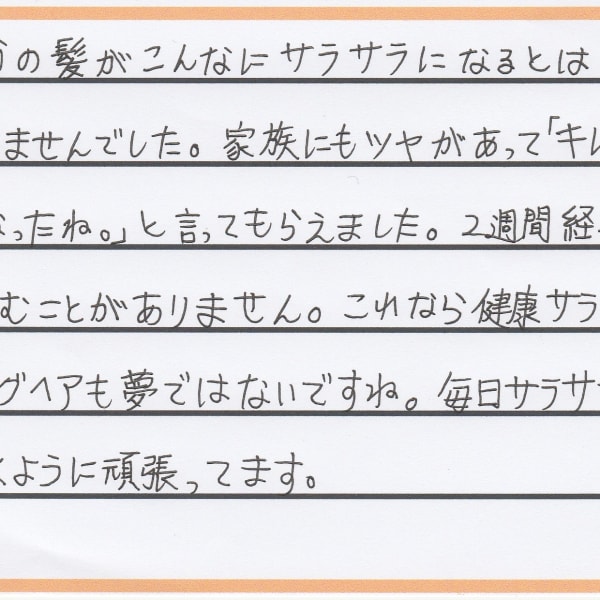 の髪がこんなにサラサラになるとは
ませんでした。家族にもツヤがあって「キレ
なったね。」と言ってもらえました。2週間経
むことがありません。これなら健康サラ
グヘアも夢ではないですね。毎日サラサ
ように頑張ってます。